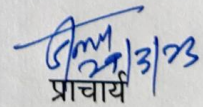 29/3/23
प्राचार्य